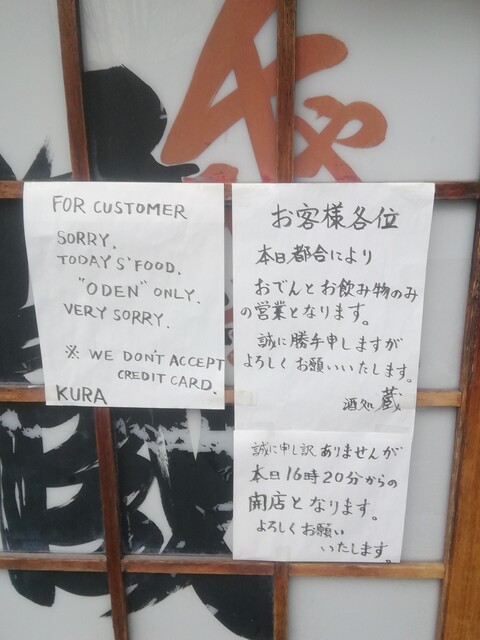 FOR CUSTOMER
SORRY.
TODAY S' FOOD.
"ODEN" ONLY.
VERY SORRY.
※ WE DON'T ACCEPT
CREDIT CARD.
KURA
お客様各位
本日都合により
おでんとお飲み物のみ
の営業となります。
誠に勝手申しますが
よろしくお願いいたします。
酒処 蔵
誠に申し訳ありませんが
本日16時20分からの
開店となります。
よろしくお願い
いたします。